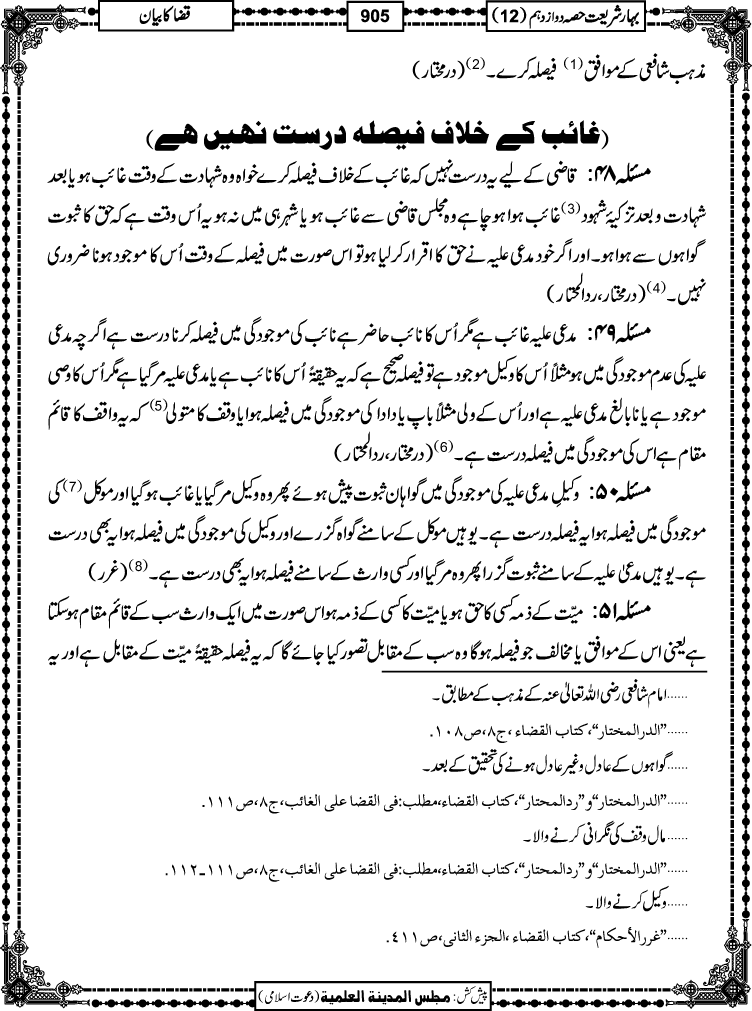 بہار شریعت حصہ دوازدہم (12)
905
قضا کا بیان
مذہب شافعی کے موافق (1) فیصلہ کرے۔ (2) (درمختار)
(غائب کے خلاف فیصلہ درست نھیں ھے)
مسئلہ ۴۸: قاضی کے لیے یہ درست نہیں کہ غائب کے خلاف فیصلہ کرے خواہ وہ شہادت کے وقت غائب ہو یا بعد
شہادت و بعد تزکیۂ شہود (3) غائب ہوا ہو چاہے وہ مجلس قاضی سے غائب ہو یا شہر ہی میں نہ ہو یہ اُس وقت ہے کہ حق کا ثبوت
گواہوں سے ہوا ہو۔ اور اگر خود مدعی علیہ نے حق کا اقرار کر لیا ہو تو اس صورت میں فیصلہ کے وقت اُس کا موجود ہونا ضروری
نہیں۔ (4) (درمختار، ردالمحتار)
مسئلہ ۴۹: مدعی علیہ غائب ہے مگر اُس کا نائب حاضر ہے نائب کی موجودگی میں فیصلہ کرنا درست ہے اگرچہ مدعی
علیہ کی عدم موجودگی میں ہو مثلاً اُس کا وکیل موجود ہے تو فیصلہ صحیح ہے کہ یہ حقیقۃً اُس کا نائب ہے یا مدعی علیہ مر گیا ہے مگر اُس کا وصی
موجود ہے یا نابالغ مدعی علیہ ہے اور اُس کے ولی مثلاً باپ یا دادا کی موجودگی میں فیصلہ ہوا یا وقف کا متولی (5) کہ یہ واقف کا قائم
مقام ہے اس کی موجودگی میں فیصلہ درست ہے۔ (6) (درمختار، ردالمحتار)
مسئلہ ۵۰: وکیلِ مدعی علیہ کی موجودگی میں گواہان ثبوت پیش ہوئے پھر وہ وکیل مر گیا یا غائب ہو گیا اور موکل (7) کی
موجودگی میں فیصلہ ہوا یہ فیصلہ درست ہے۔ یوہیں موکل کے سامنے گواہ گزرے اور وکیل کی موجودگی میں فیصلہ ہوا یہ بھی درست
ہے۔ یوہیں مدعیٰ علیہ کے سامنے ثبوت گزرا پھر وہ مر گیا اور کسی وارث کے سامنے فیصلہ ہوا یہ بھی درست ہے۔ (8) (غرر)
مسئلہ ۵۱: میّت کے ذمہ کسی کا حق ہو یا میّت کا کسی کے ذمہ ہو اس صورت میں ایک وارث سب کے قائم مقام ہو سکتا
ہے یعنی اس کے موافق یا مخالف جو فیصلہ ہوگا وہ سب کے مقابل تصور کیا جائے گا کہ یہ فیصلہ حقیقۃً میّت کے مقابل ہے اور یہ
......امام شافعی رضی اللہ تعالیٰ عنہ کے مذہب کے مطابق۔
......”الدرالمختار“، کتاب القضاء، ج۸، ص۱۰۸.
......گواہوں کے عادل و غیر عادل ہونے کی تحقیق کے بعد۔
......”الدرالمختار“ و ”ردالمحتار“، کتاب القضاء، مطلب: فی القضا علی الغائب، ج۸، ص۱۱۱.
......مال وقف کی نگرانی کرنے والا۔
......”الدرالمختار“ و ”ردالمحتار“، کتاب القضاء، مطلب: فی القضا علی الغائب، ج۸، ص۱۱۱۔۱۱۲.
......وکیل کرنے والا۔
......”غررالأحکام“، کتاب القضاء، الجزء الثانی، ص۴۱۱.
پیش کش: مجلس المدینة العلمیة (دعوت اسلامی)